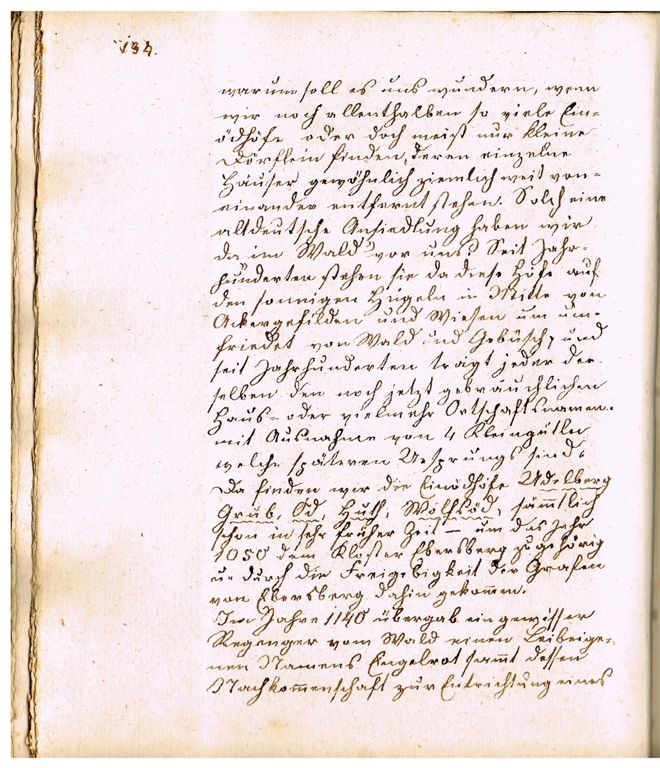 134.
warum soll es uns wundern, wenn
wir noch allenthalben so viele Ein-
ödhöfe oder doch meist nur kleine
Dörflein finden, deren einzelne
Häuser gewöhnlich ziemlich weit von-
einander entfernt stehen. Solch eine
altdeutsche Ansiedlung haben wir
da im Wald vor uns. Seit Jahr-
hunderten stehen sie da diese Höfe auf
den sonnigen Hügeln in Mitte von
Ackergefilden und Wiesen um um-
friedet von Wald und Gebüsch, und
seit Jahrhunderten trägt jeder der-
selben den noch jetzt gebräuchlichen
Haus- oder vielmehr Ortschaftsnamen.
mit Ausnahme von 4 Kleingütln
welche späteren Ursprungs sind.
Da finden wir die Einödhöfe Udelberg
Grub, Öd, Huth, Wolfsöd, sämmtlich
schon in sehr früher Zeit – um das Jahr
1050 dem Kloster Ebersberg zugehörig
u. durch die Freigebigkeit der Grafen
von Ebersberg dahin gekom̄en.
Im Jahre 1140 übergab ein gewisser
Regenger vom Wald einen Leibeige-
nen Namens Engelrot sam̄t dessen
Nachkom̄enschaft zur Entrichtung eines